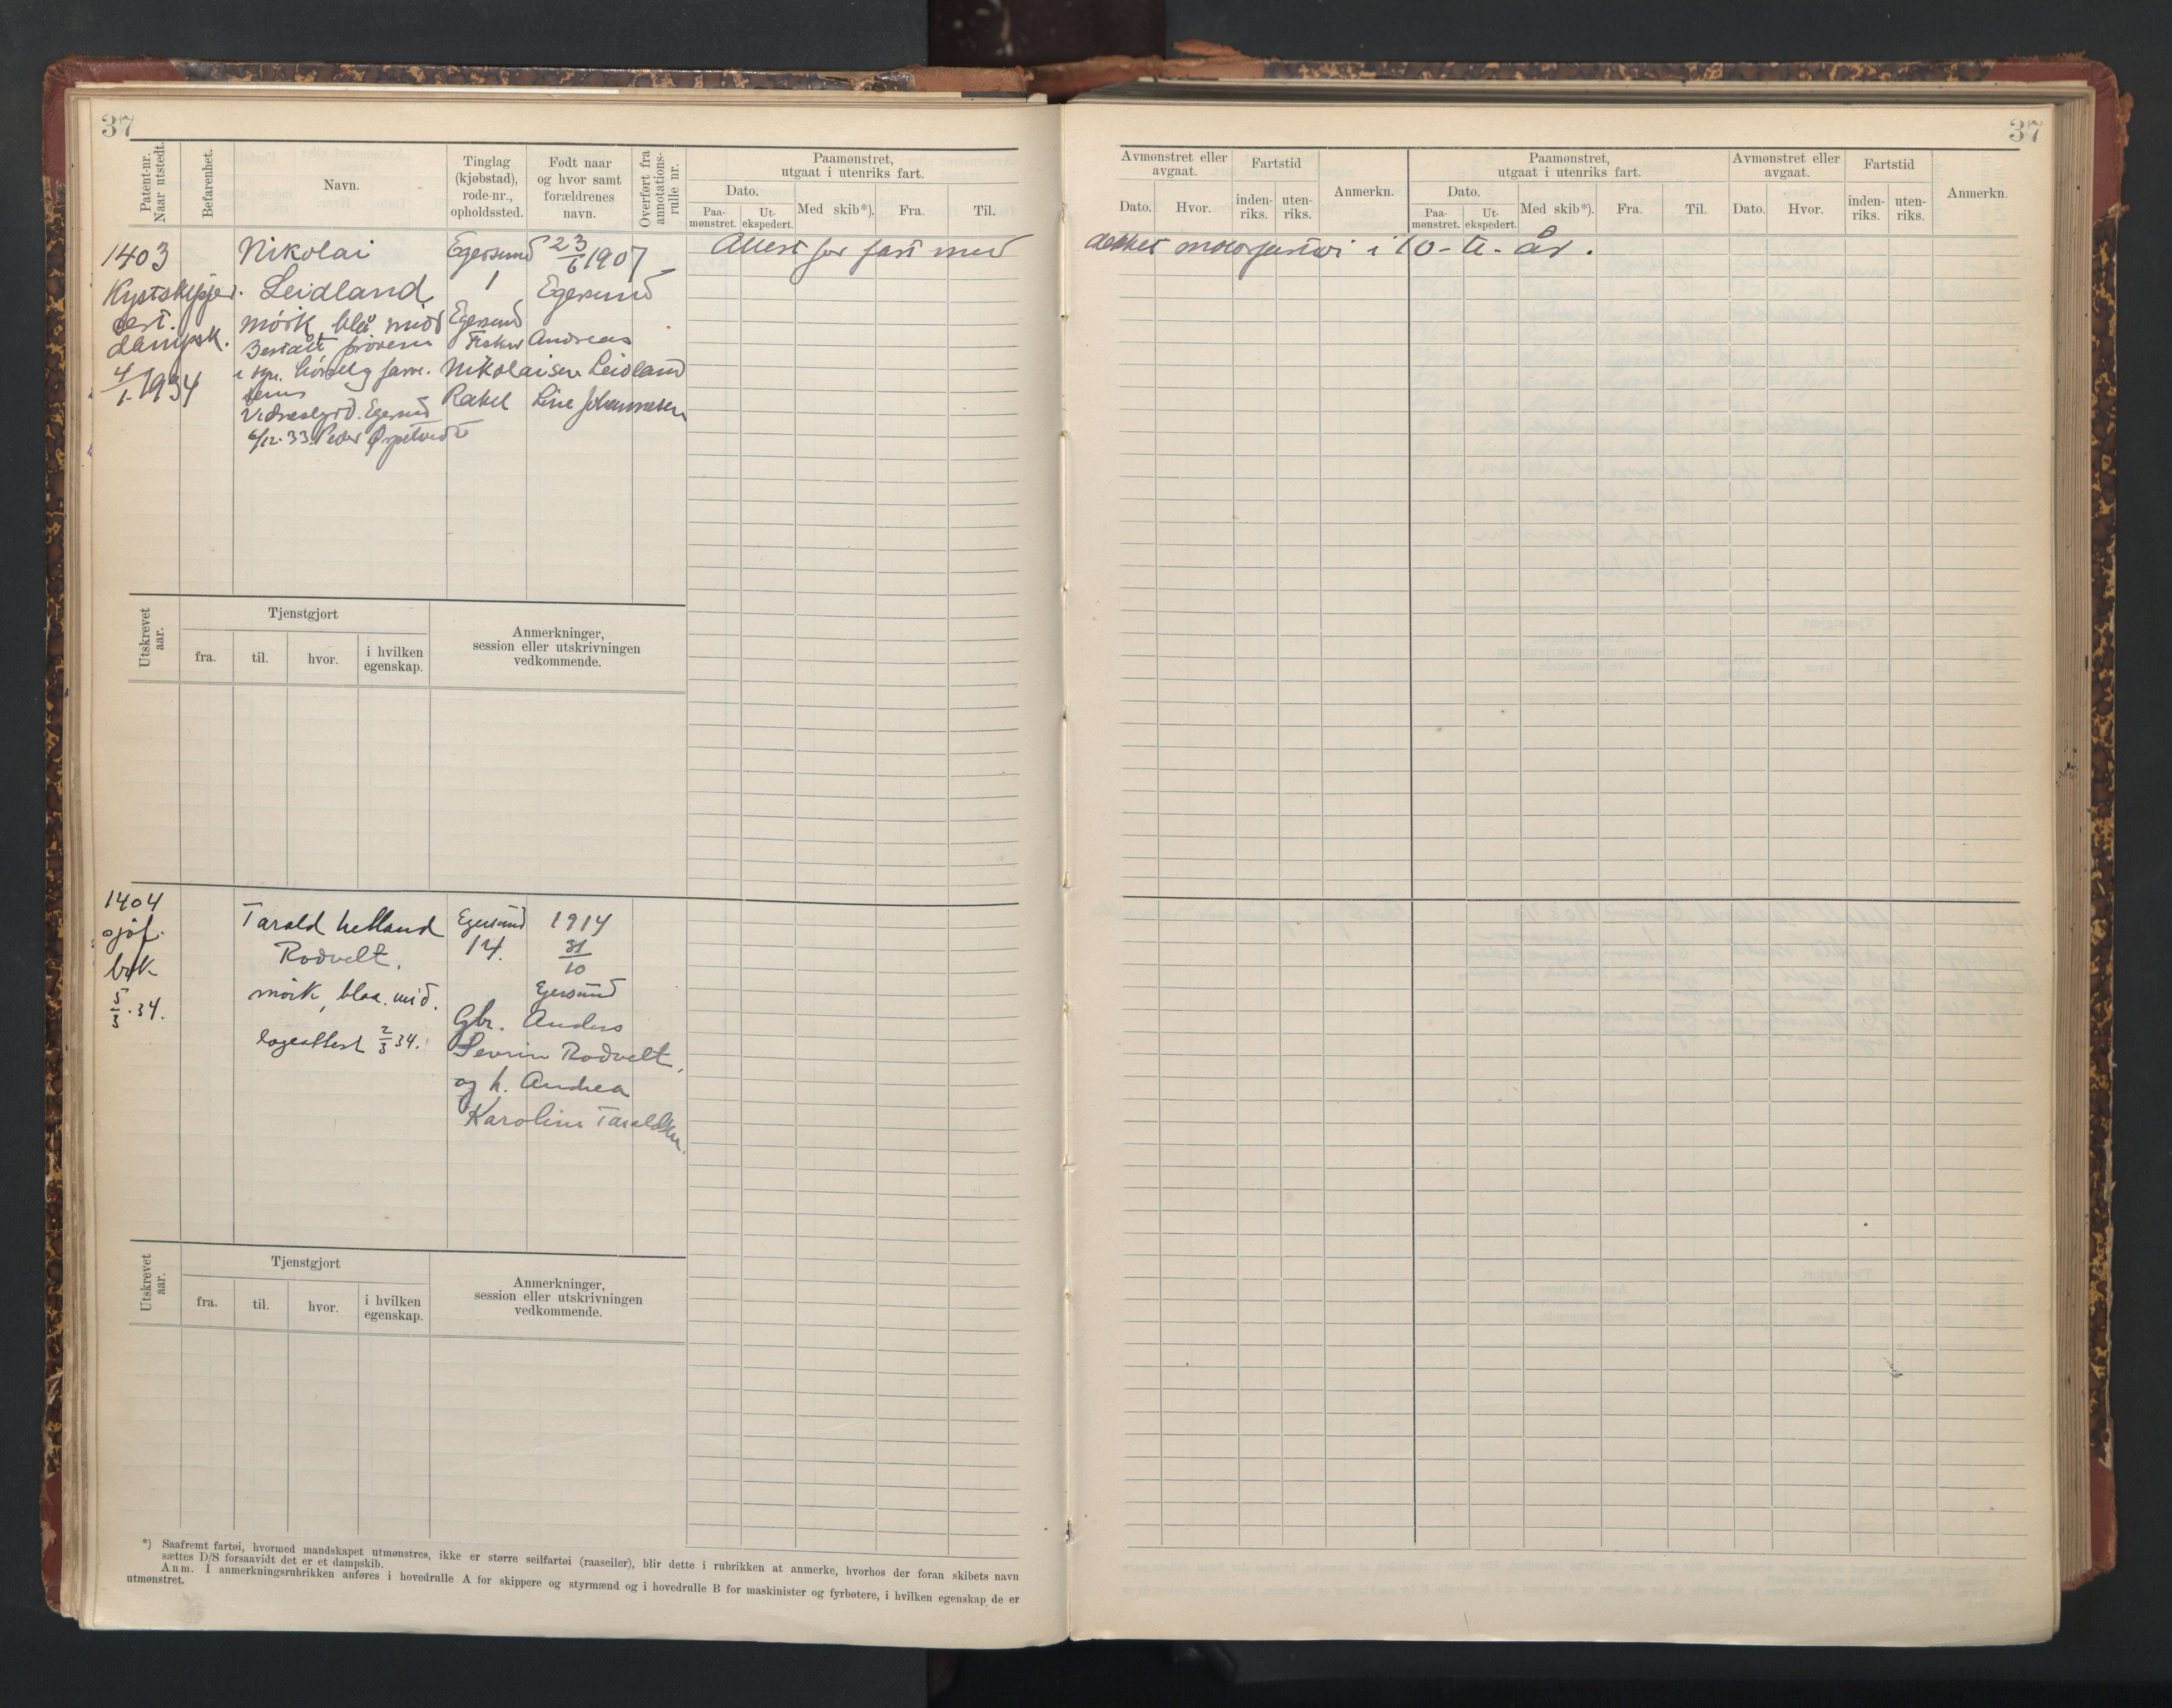 37
Patent-nr.
Naar utstedt.
Befarenhet.
Navn.
Tinglag
(kjøbstad),
rode-nr.,
opholdssted.
Født naar
og hvor samt
forældrenes
navn.
Overført fra
annotations-
rulle nr.
Paamønstret,
utgaat i utenriks fart.
Dato.
Paa-
mønstret.
Ut-
ekspedert.
Med skib*).
Fra.
Til.
1403
Kystskipper
sert.
dampsk.
4/1 1934
Nikolai
Leidland
mörk, blå, mid
Bestått pröven
i syn, hörsel og farve.
sans
Egersund
6/12-33. Peder
Egersund
1
Egersund
Fisker Andreas
Nikolaisen Leidland
Rakel Line Johannesen
23/6 1907
Egersund
Attest for fart med
Utskrevet
aar.
Tjenstgjort
fra.
til.
hvor.
i hvilken
egenskap.
Anmerkninger,
session eller utskrivningen
vedkommende.
1404
sjöf.
bok
5/3.34.
Tarald Helland
Rodvelt.
mörk, blaa. mid.
2/3 34.
Egersund
14.
1914
31/10
Egersund
Gbr. Anders
Sevrin Rodvelt,
og h. Andrea
Karoline Taraldsen.
Utskrevet
aar.
Tjenstgjort
fra.
til.
hvor.
i hvilken
egenskap.
Anmerkninger,
session eller utskrivningen
vedkommende.
*) Saafremt fartøi, hvormed mandskapet utmønstres, ikke er større seilfartøi (raaseiler), blir dette i rubrikken at anmerke, hvorhos der foran skibets navn
sættes D/S forsaavidt det er et dampskib.
Anm. I anmerkningsrubrikken anføres i hovedrulle A for skippere og styrmænd og i hovedrulle B for maskinister og fyrbøtere, i hvilken egenskap de er
utmønstret.
37
Avmønstret eller
avgaat.
Dato.
Hvor.
Fartstid
inden-
riks.
uten-
riks.
Anmerkn.
Paamønstret,
utgaat i utenriks fart.
Dato.
Paa-
mønstret.
Ut-
ekspedert.
Med skib*).
Fra.
Til.
Avmønstret eller
avgaat.
Dato.
Hvor.
Fartstid
inden-
riks.
uten-
riks.
Anmerkn.
dekket motorfartöi i 10-te-år.